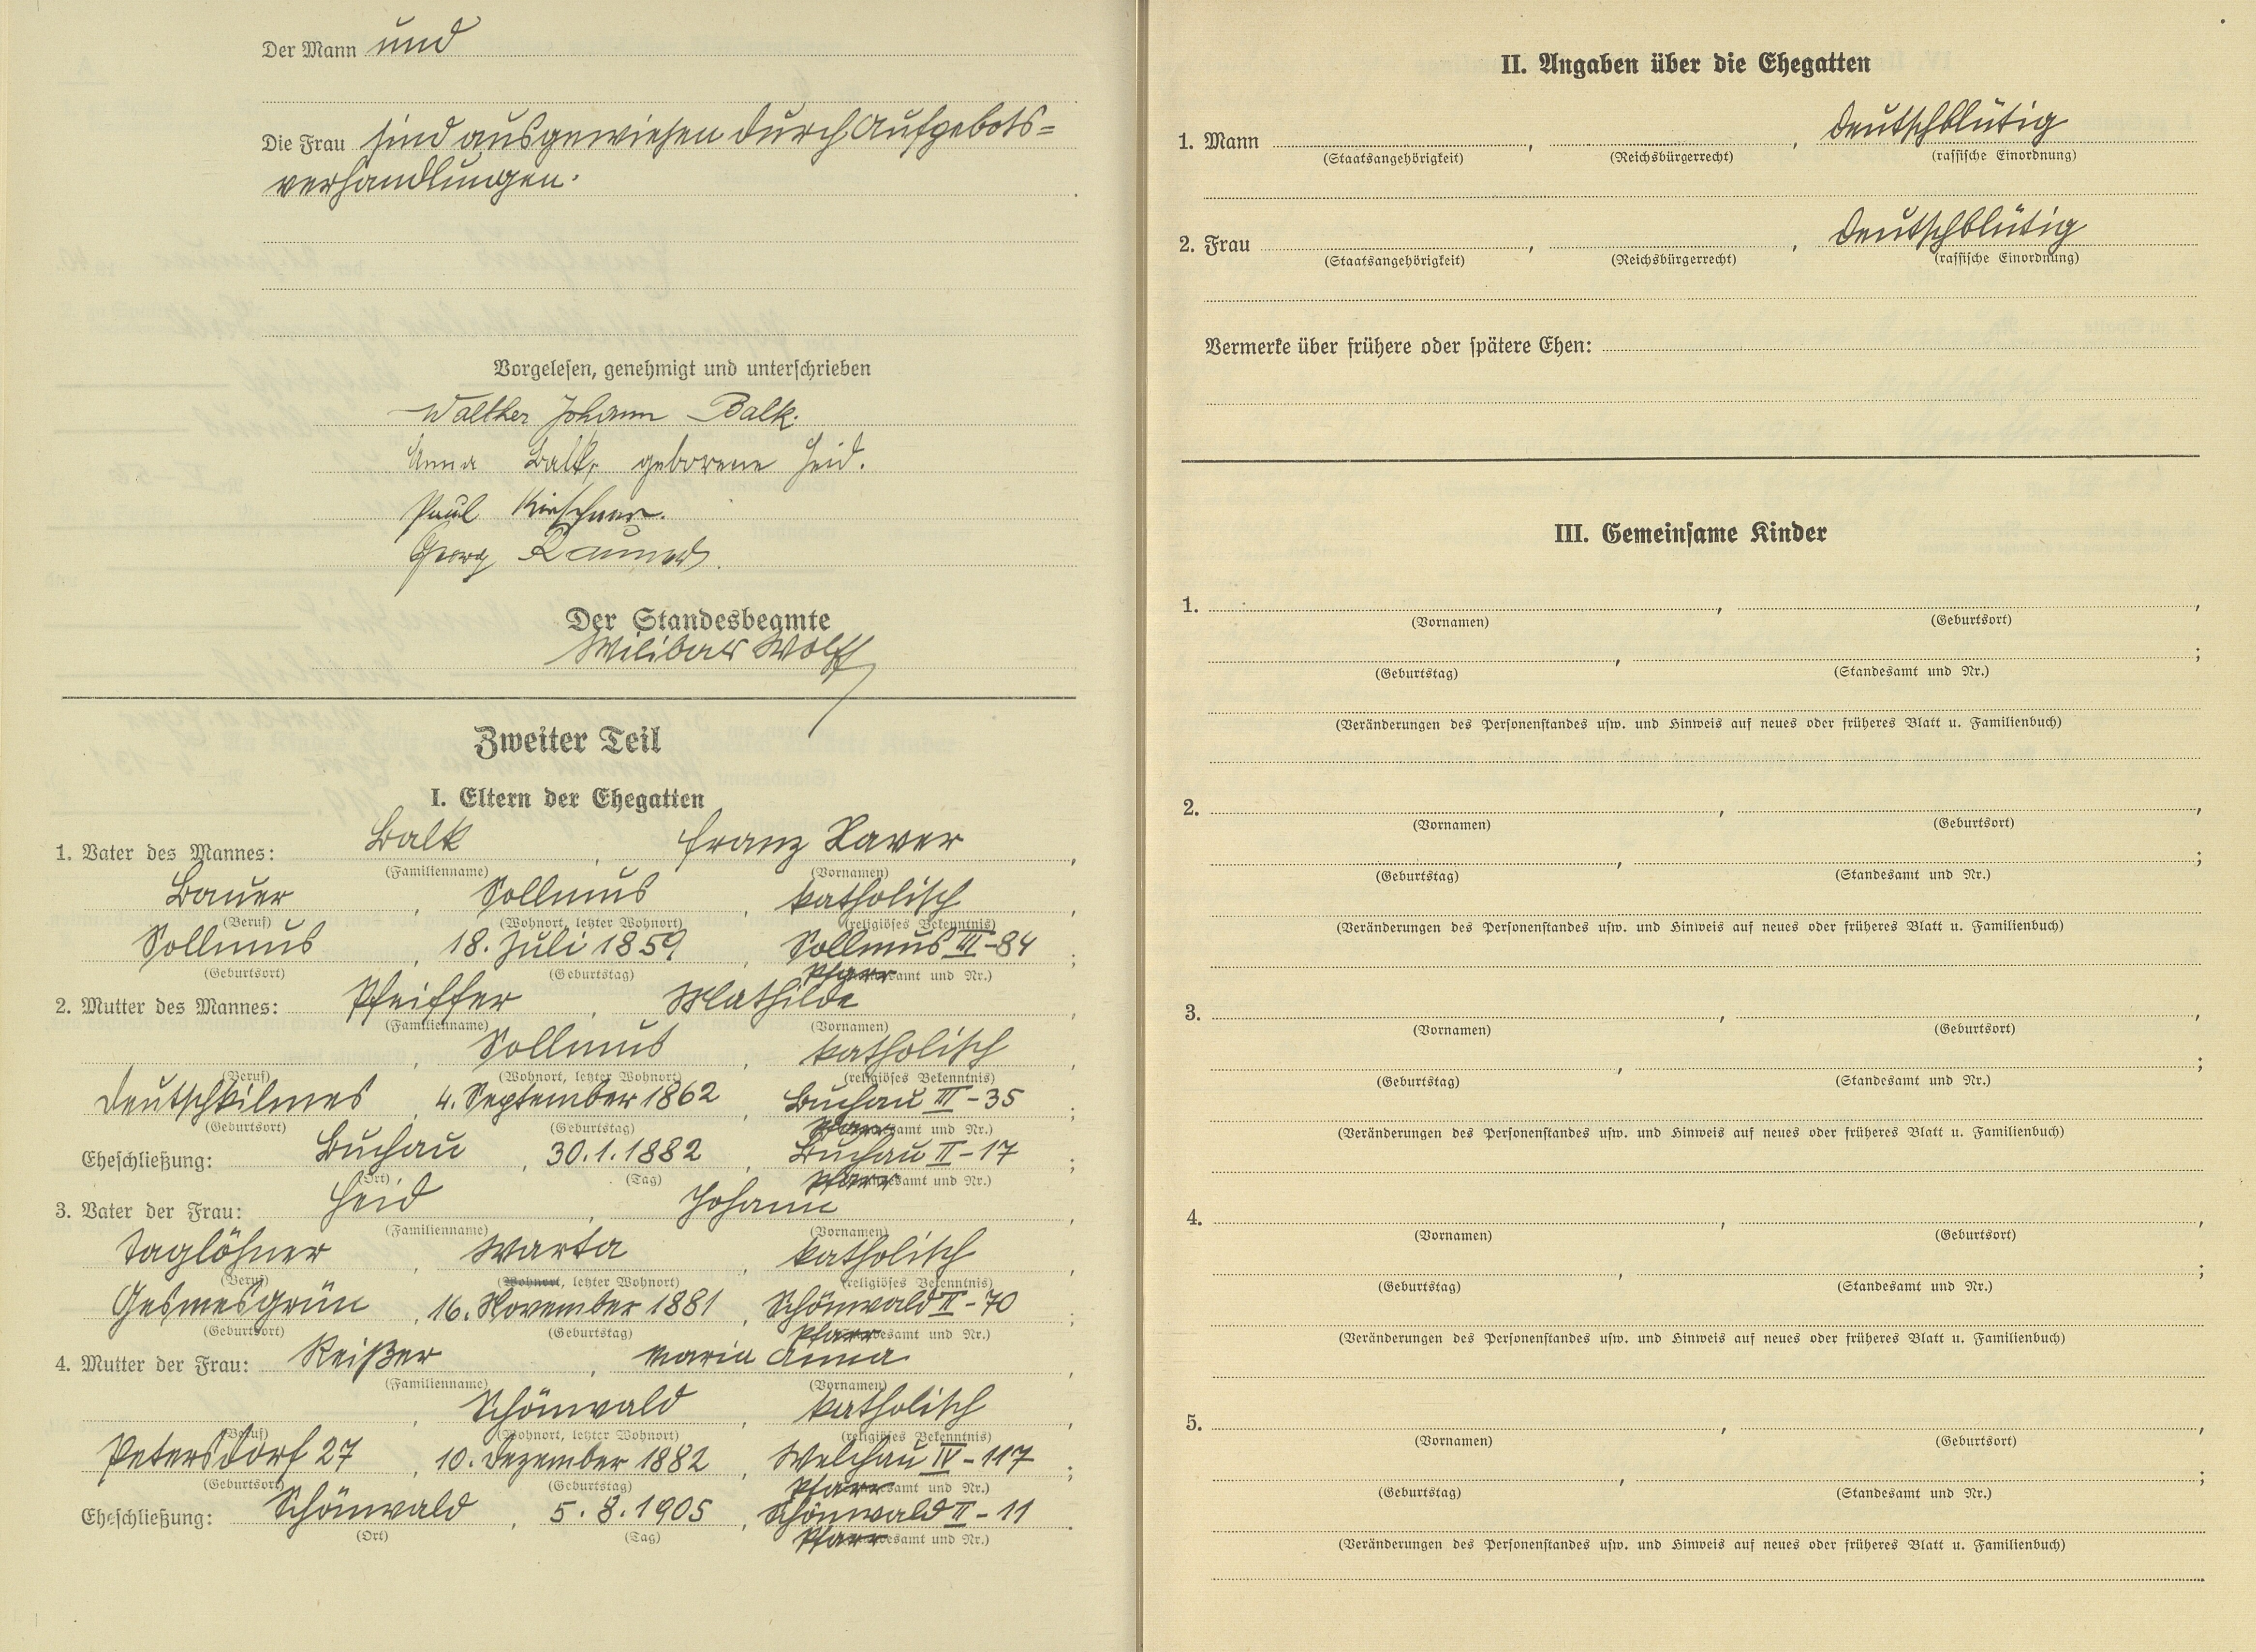 Der Mann und
Die Frau sind ausgewiesen durch Aufgebots=
verhandlungen.
Vorgelesen, genehmigt und unterschrieben
Walther Johann Balk.
Anna Balk, geborene Heid.
Paul Kirschner.
Georg
Der Standesbeamte
Wilibald Wolf
Zweiter Teil
I. Eltern der Ehegatten
1. Vater des Mannes: Balk, Franz Xaver,
(Familienname) (Vornamen)
Bauer, Sollmus, katholisch,
(Beruf) (Wohnort, letzter Wohnort) (religiöses Bekenntnis)
Sollmus, 18. Juli 1859, Sollmus III-84;
(Geburtsort) (Geburtstag) Pfarramt und Nr.)
2. Mutter des Mannes: Pfeiffer, Mathilde,
(Familienname) (Vornamen)
, Sollmus, katholisch,
(Beruf) (Wohnort, letzter Wohnort) (religiöses Bekenntnis)
Deutschkilmes, 4. September 1862, Buchau III-35;
(Geburtsort) (Geburtstag) Pfarramt und Nr.)
Eheschließung: Buchau, 30.1.1882, Buchau II-17;
(Ort) (Tag) Pfarramt und Nr.)
3. Vater der Frau: Heid, Johann,
(Familienname) (Vornamen)
Taglöhner, Warta, katholisch,
(Beruf) (Wohnort, letzter Wohnort) (religiöses Bekenntnis)
Gesmesgrün, 16. November 1881, Schönwald II-70;
(Geburtsort) (Geburtstag) Pfarramt und Nr.)
4. Mutter der Frau: Reißer, Maria Anna,
(Familienname) (Vornamen)
, Schönwald, katholisch,
(Beruf) (Wohnort, letzter Wohnort) (religiöses Bekenntnis)
Petersdorf 27, 10. Dezember 1882, Welchau IV-117;
(Geburtsort) (Geburtstag) Pfarramt und Nr.)
Eheschließung: Schönwald, 5.8.1905, Schönwald II-11.
(Ort) (Tag) Pfarramt und Nr.)
II. Angaben über die Ehegatten
1. Mann , , deutschblütig
(Staatsangehörigkeit) (Reichsbürgerrecht) (rassische Einordnung)
2. Frau , , deutschblütig
(Staatsangehörigkeit) (Reichsbürgerrecht) (rassische Einordnung)
Vermerke über frühere oder spätere Ehen:
III. Gemeinsame Kinder
1. , ,
(Vornamen) (Geburtsort)
, ;
(Geburtstag) (Standesamt und Nr.)
(Veränderungen des Personenstandes usw. und Hinweis auf neues oder früheres Blatt u. Familienbuch)
2. , ,
(Vornamen) (Geburtsort)
, ;
(Geburtstag) (Standesamt und Nr.)
(Veränderungen des Personenstandes usw. und Hinweis auf neues oder früheres Blatt u. Familienbuch)
3. , ,
(Vornamen) (Geburtsort)
, ;
(Geburtstag) (Standesamt und Nr.)
(Veränderungen des Personenstandes usw. und Hinweis auf neues oder früheres Blatt u. Familienbuch)
4. , ,
(Vornamen) (Geburtsort)
, ;
(Geburtstag) (Standesamt und Nr.)
(Veränderungen des Personenstandes usw. und Hinweis auf neues oder früheres Blatt u. Familienbuch)
5. , ,
(Vornamen) (Geburtsort)
, ;
(Geburtstag) (Standesamt und Nr.)
(Veränderungen des Personenstandes usw. und Hinweis auf neues oder früheres Blatt u. Familienbuch)